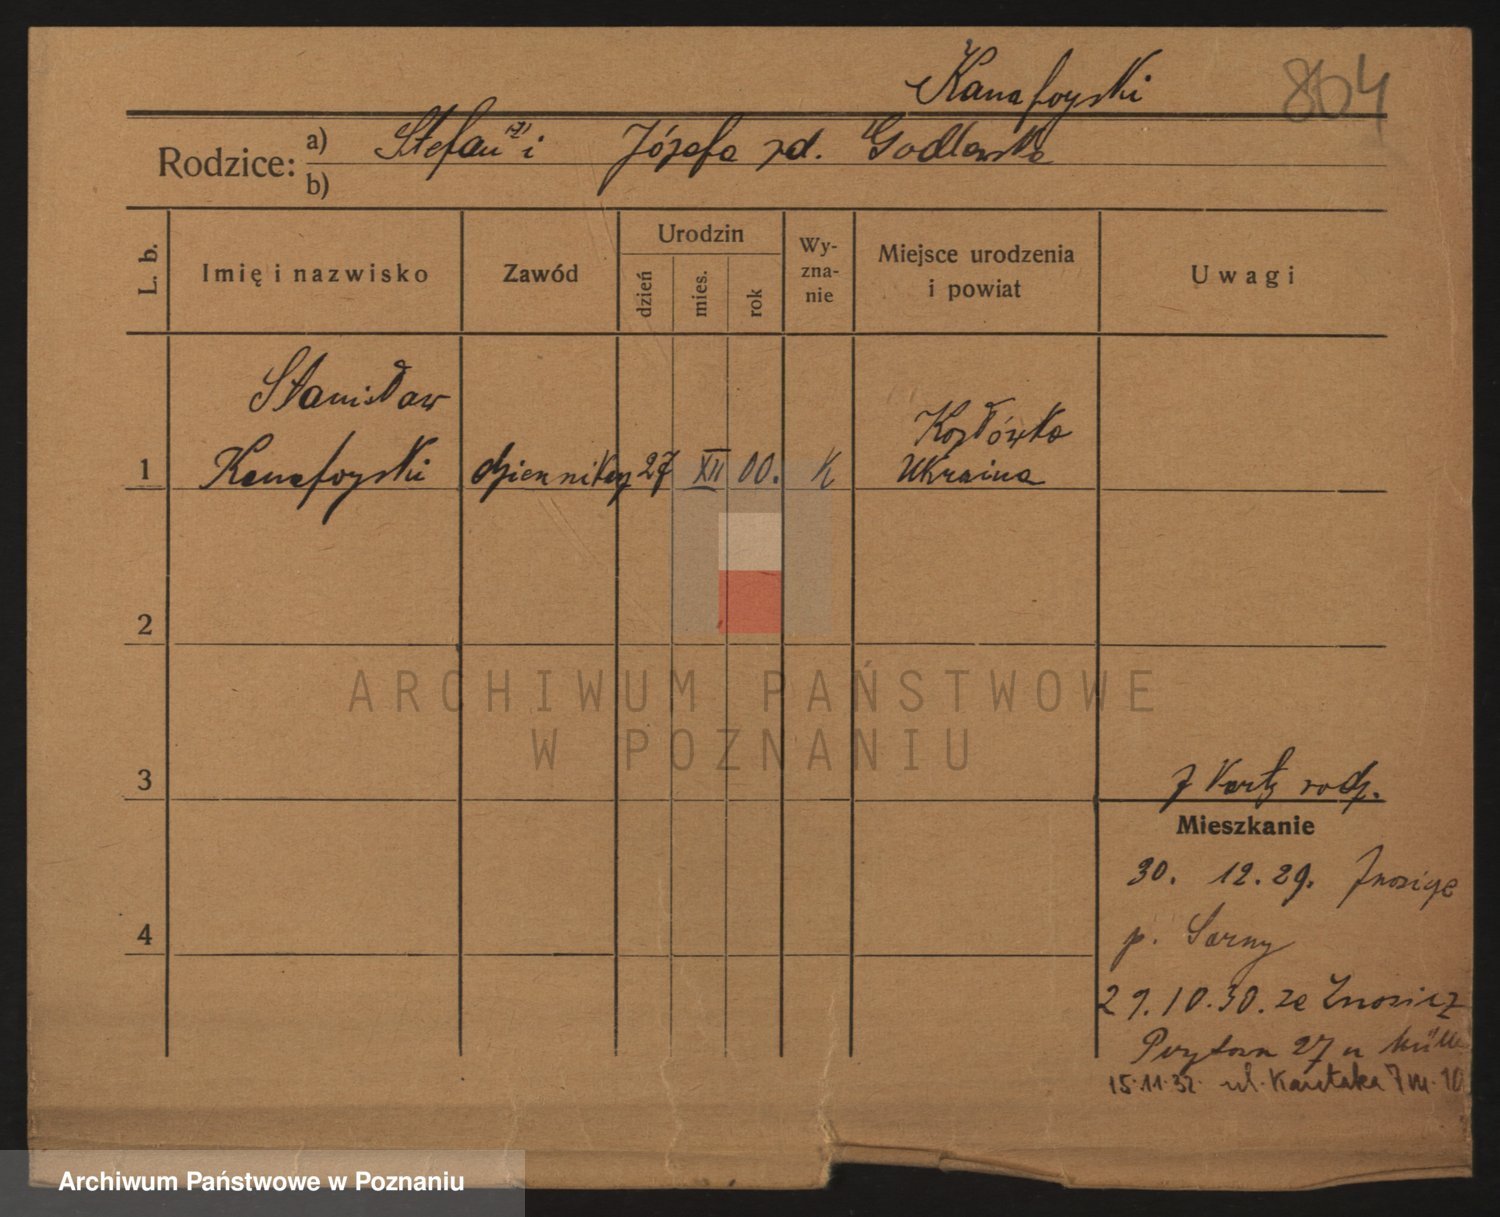 Kanafoyski 864
Rodzice: a) Stefan i Józefa zd. Godlewska
b)
L. b. Imię i nazwisko Zawód Urodzin dzień mies. rok Wyznanie Miejsce urodzenia i powiat Uwagi
Stanisław Kozłówka
1 Kanafoyski dziennikarz 27 XII 00. K Ukraina
2
3
z Karty rodz.
Mieszkanie
30. 12. 29.
4
p. Sarny
29.10.30. ze
27 u
15.11.32. ul. 7 m. 10
ARCHIWUM PAŃSTWOWE
W POZNANIU
Archiwum Państwowe w Poznaniu